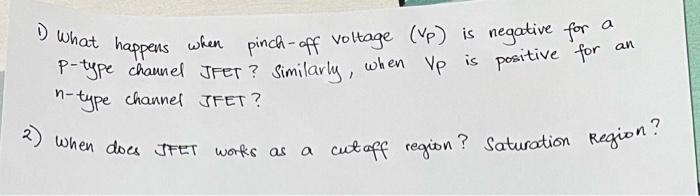 1) What happens when pinch-off voltage (Vp) is negative for a
p-type channel JFET? Similarly, when Vp is positive for an
n-type channel JFET?
2) when does JFET works as a cutoff region? Saturation Region?